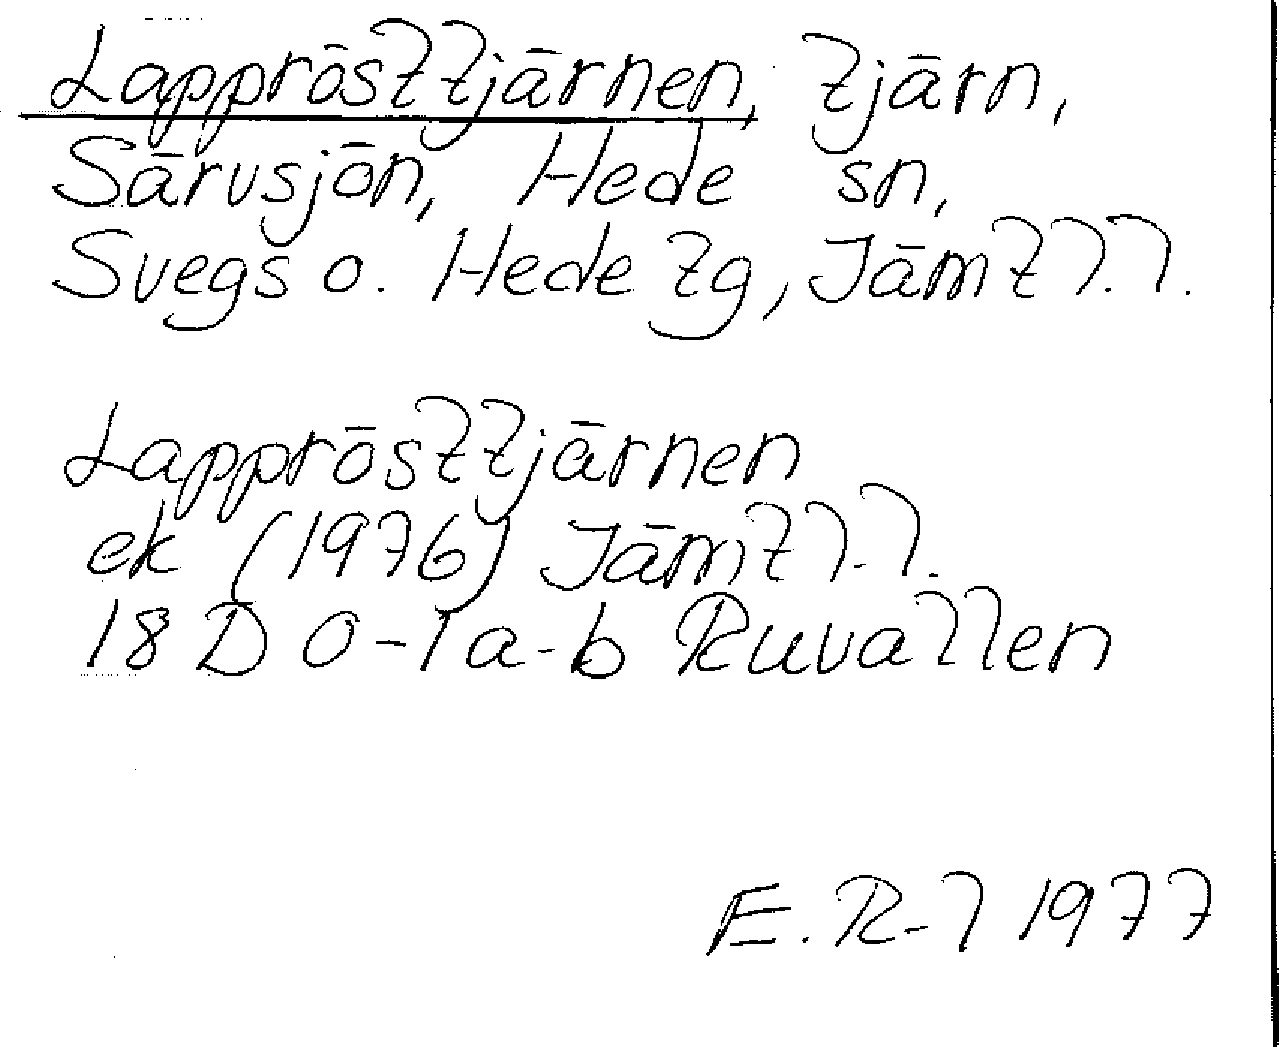 Lapprösttjärnen, tjärn,
Särvsjön, Hede sn,
Svegs o. Hede tg, Jämtl.l.
Lapprösttjärnen
ek (1976) Jämtl.l.
18 D 0-1 a-b Ruvallen
E. R-l 1977